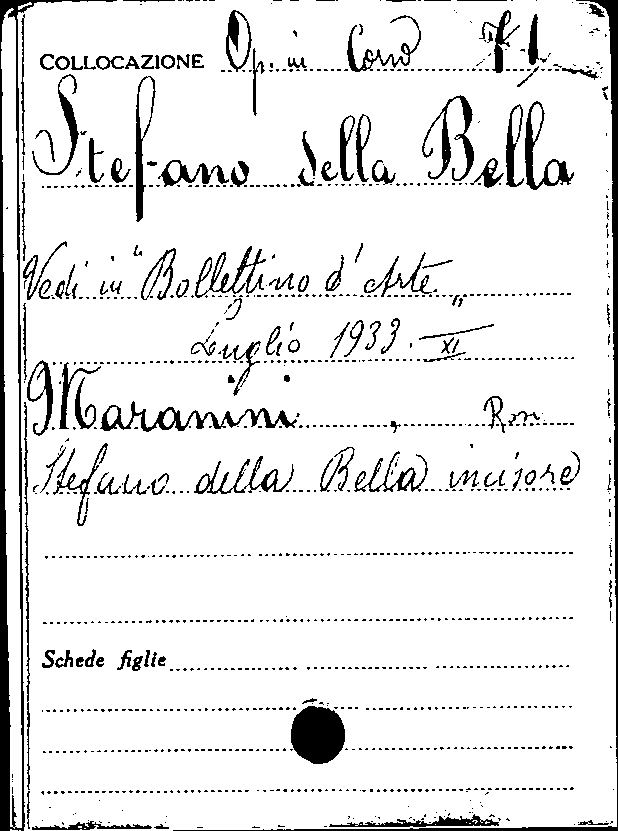 COLLOCAZIONE Op. in Corso 71
Stefano della Bella
Vedi in "Bollettino d'Arte"
Luglio 1933. - XI
Maranini , Rom
Stefano della Bella incisore
Schede figlie